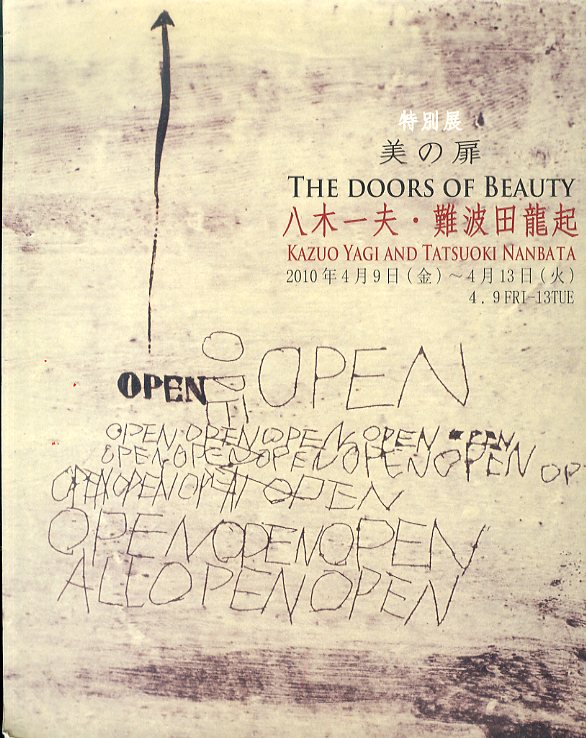 特別展
美の扉
THE DOORS OF BEAUTY
八木一夫・難波田龍起
KAZUO YAGI AND TATSUOKI NANBATA
2010年4月9日(金)～4月13日(火)
4.9FRI-13TUE
OPEN
OPEN
OPEN
OPEN·OPENOPEN OPEN OPEN
OPEN·OPENOPENOPENOPEN OP
OPENOPENOPEN OPEN
OPENOPENOPEN
ALLOPENOPEN